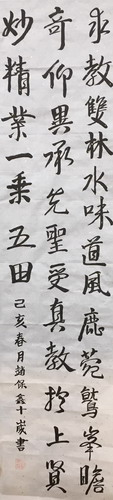 求教雙林水味道風鹿菀鷲峯瞻
奇仰異承先聖受真教於上賢
妙精業一乘五田
己亥春月趙保鑫十歲書